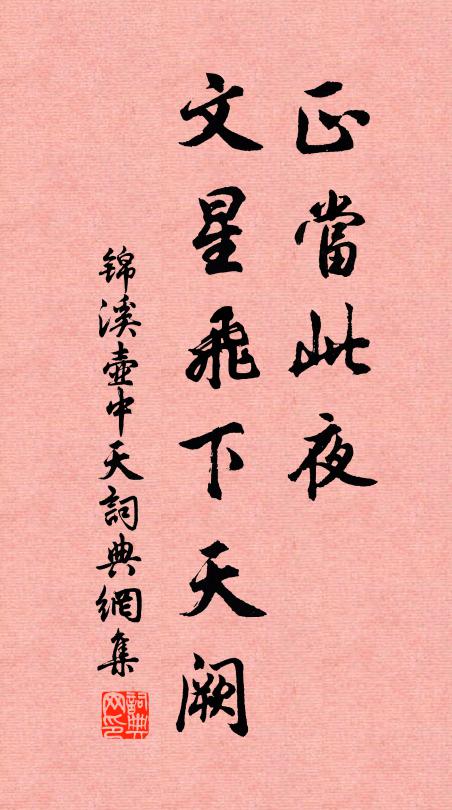 正當此夜
文星飛下天闕
錦溪壺中天詞典網集
詞典网印